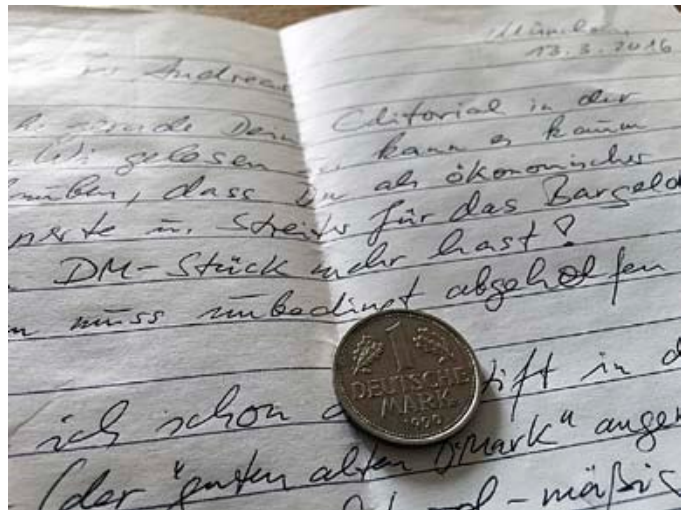 München
13.3.2016
Andreas
gerade Dein Editorial in der
gelesen u. kann es kaum
dass Du als ökonomischer
u. Streiter für das Bargeld
DM-Stück mehr hast?
muss unbedingt abgeholfen
1
DEUTSCHE
MARK
1990
ich schon in d
(der "guten alten D-Mark"
-mäßig